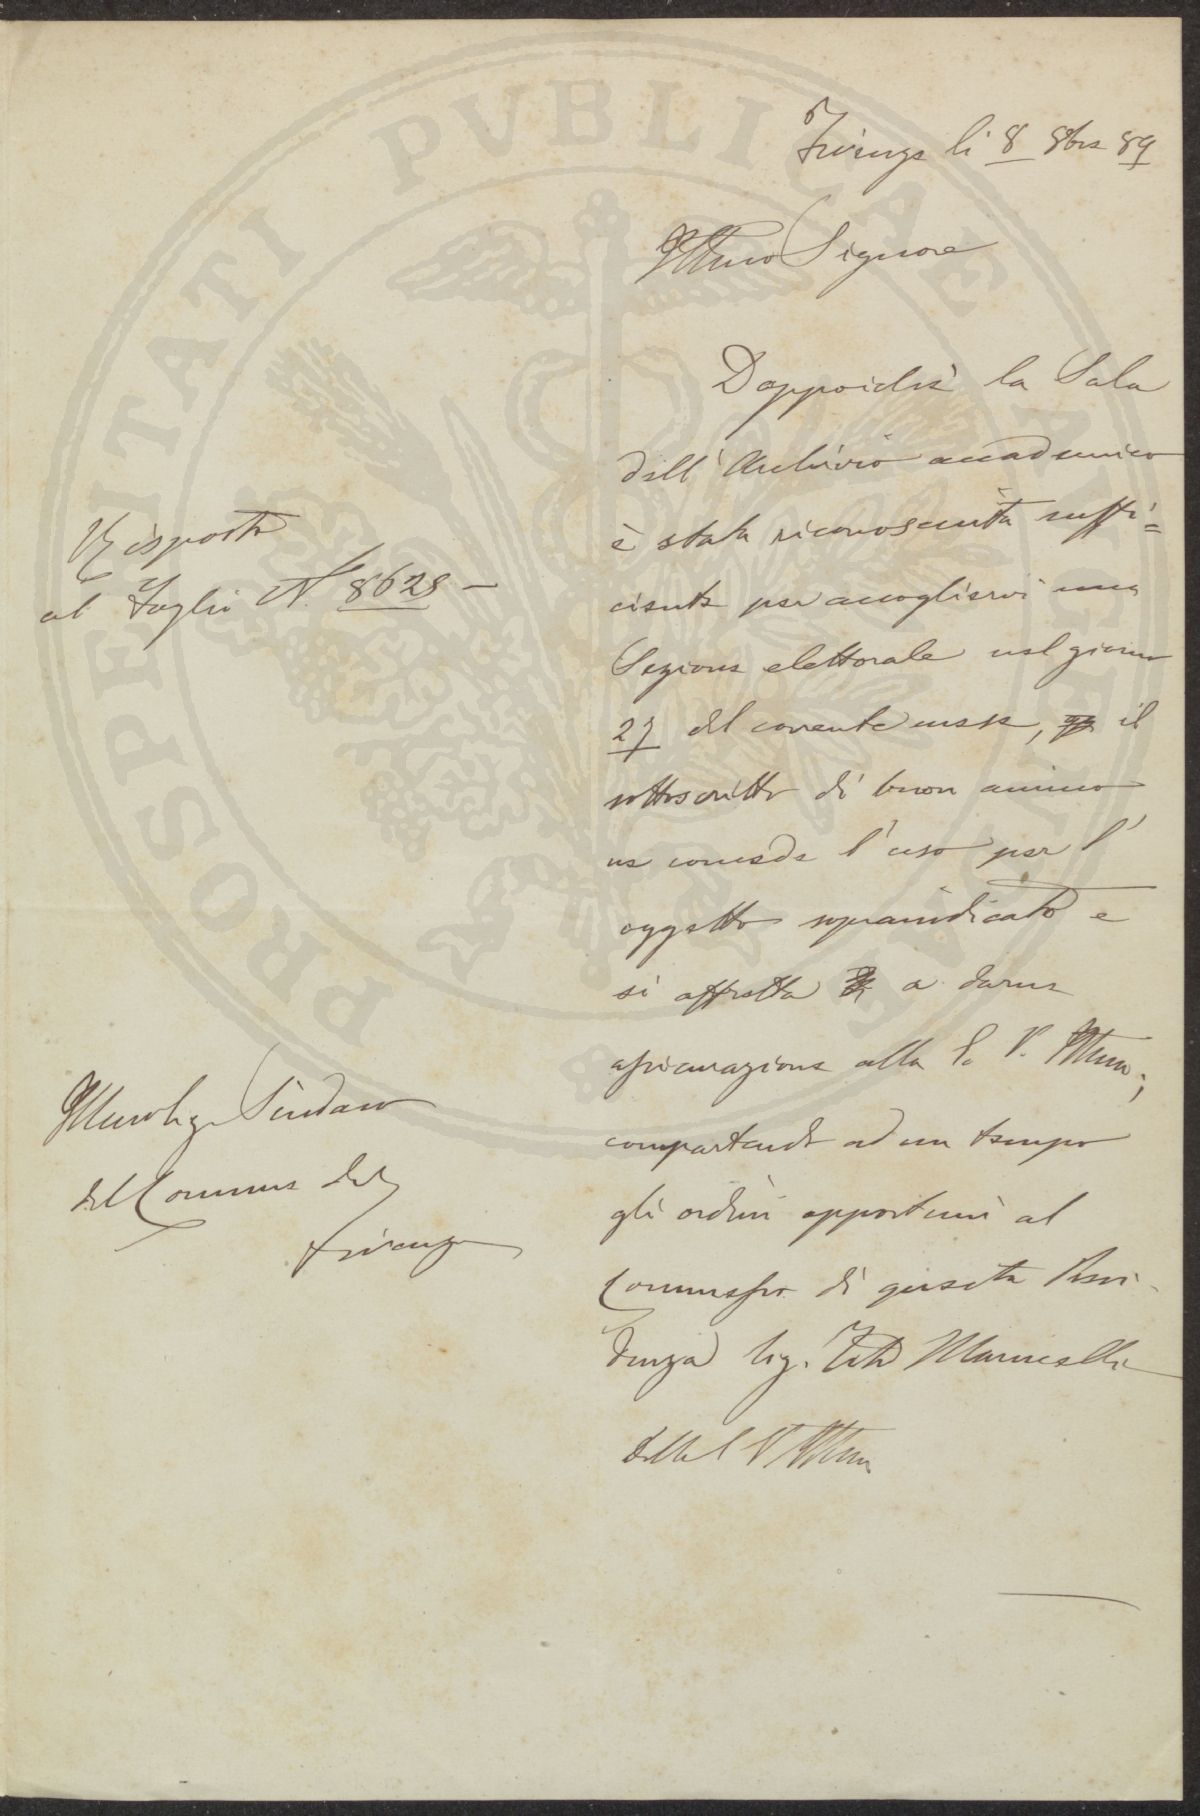 Firenze li 8 8bre 89
Illmo Signore
Doppoichè la Sala
dell'Archivio accademico
è stata riconosciuta suffi=
ciente per accogliervi una
Sezione elettorale nel giorno
27 del corrente mese, il
sottoscritto di buon animo
ne concede l'uso per l'
oggetto sopraindicato e
si affretta a darne
assicurazione alla S. V. Illma;
compartendo ad un tempo
gli ordini opportuni al
Commesso di questa Resi-
denza Sig. Tito Marinelli
Della S V Illma
Risposta
al Foglio N. 8628 –
Illmo Sig. Sindaco
del Comune di
Firenze
PROSPERITATI PVBLICAE AVGENDAE